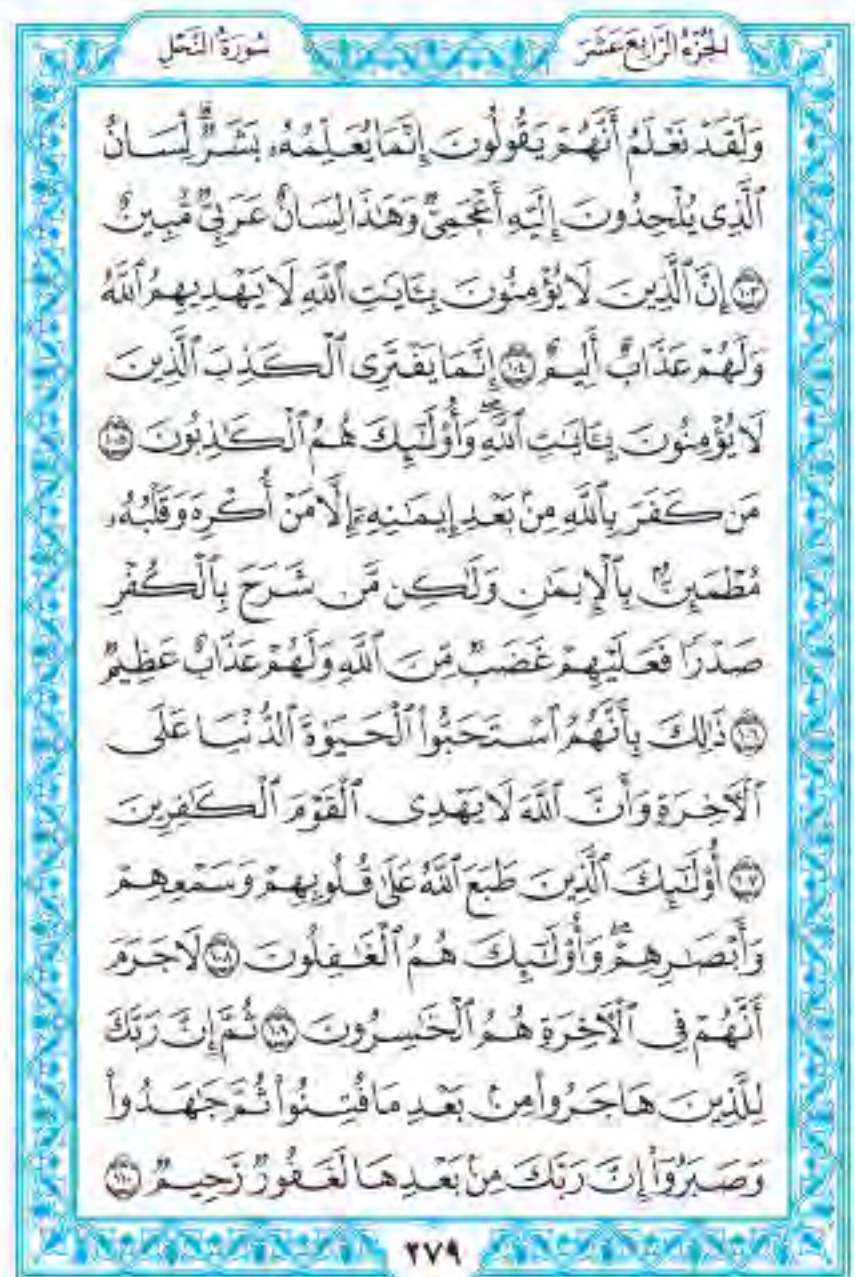 الجزء الرابع عشر
سورة النحل
وَلَقَدْ نَعْلَمُ أَنَّهُمْ يَقُولُونَ إِنَّمَا يُعَلِّمُهُۥ بَشَرٌۗ لِّسَانُ
ٱلَّذِى يُلْحِدُونَ إِلَيْهِ أَعْجَمِىٌّ وَهَٰذَا لِسَانٌ عَرَبِىٌّ مُّبِينٌ
۝١٠٣ إِنَّ ٱلَّذِينَ لَا يُؤْمِنُونَ بِـَٔايَٰتِ ٱللَّهِ لَا يَهْدِيهِمُ ٱللَّهُ
وَلَهُمْ عَذَابٌ أَلِيمٌ ۝١٠٤ إِنَّمَا يَفْتَرِى ٱلْكَذِبَ ٱلَّذِينَ
لَا يُؤْمِنُونَ بِـَٔايَٰتِ ٱللَّهِۖ وَأُو۟لَٰٓئِكَ هُمُ ٱلْكَٰذِبُونَ ۝١٠٥
مَن كَفَرَ بِٱللَّهِ مِنۢ بَعْدِ إِيمَٰنِهِۦٓ إِلَّا مَنْ أُكْرِهَ وَقَلْبُهُۥ
مُطْمَئِنٌّۢ بِٱلْإِيمَٰنِ وَلَٰكِن مَّن شَرَحَ بِٱلْكُفْرِ
صَدْرًا فَعَلَيْهِمْ غَضَبٌ مِّنَ ٱللَّهِ وَلَهُمْ عَذَابٌ عَظِيمٌ
۝١٠٦ ذَٰلِكَ بِأَنَّهُمُ ٱسْتَحَبُّوا۟ ٱلْحَيَوٰةَ ٱلدُّنْيَا عَلَى
ٱلْءَاخِرَةِ وَأَنَّ ٱللَّهَ لَا يَهْدِى ٱلْقَوْمَ ٱلْكَٰفِرِينَ
۝١٠٧ أُو۟لَٰٓئِكَ ٱلَّذِينَ طَبَعَ ٱللَّهُ عَلَىٰ قُلُوبِهِمْ وَسَمْعِهِمْ
وَأَبْصَٰرِهِمْۖ وَأُو۟لَٰٓئِكَ هُمُ ٱلْغَٰفِلُونَ ۝١٠٨ لَا جَرَمَ
أَنَّهُمْ فِى ٱلْءَاخِرَةِ هُمُ ٱلْخَٰسِرُونَ ۝١٠٩ ثُمَّ إِنَّ رَبَّكَ
لِلَّذِينَ هَاجَرُوا۟ مِنۢ بَعْدِ مَا فُتِنُوا۟ ثُمَّ جَٰهَدُوا۟
وَصَبَرُوٓا۟ إِنَّ رَبَّكَ مِنۢ بَعْدِهَا لَغَفُورٌ رَّحِيمٌ ۝١١٠
٢٧٩